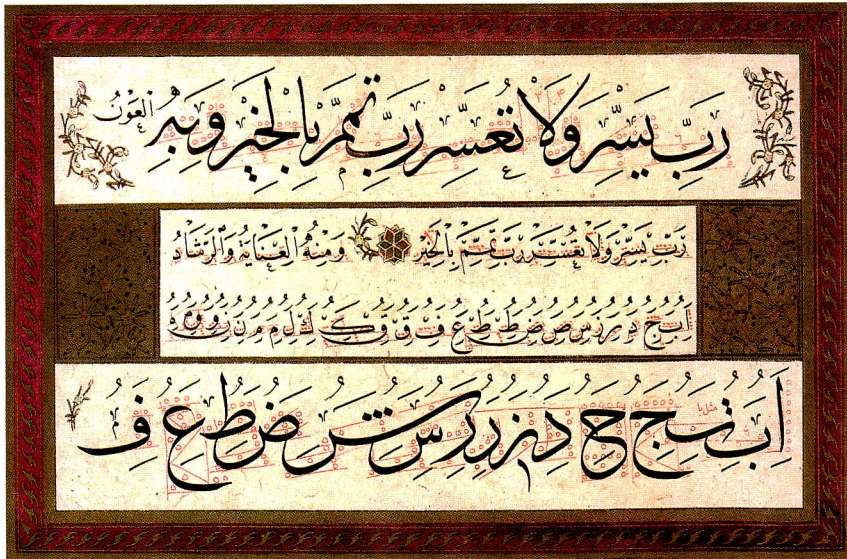 رَبِّ يَسِّرْ وَلَا تُعَسِّرْ رَبِّ تَمِّمْ بِالْخَيْرِ وَبِهِ الْعَوْنُ
رَبِّ يَسِّرْ وَلَا تُعَسِّرْ رَبِّ تَمِّمْ بِالْخَيْرِ وَمِنْهُ الْعِنَايَةُ وَالرَّشَادُ
ا ب ج د ر ز س ص ض ط ع ف ق ك ل م ن
ا ب ت ج ح د ر ز س ش ض ط ع ف